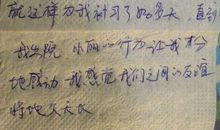 就这样为我补习了好多天,直到
我出院。小丽的行为让我十分
地感动,我感觉我们之间的友谊
将地久天长